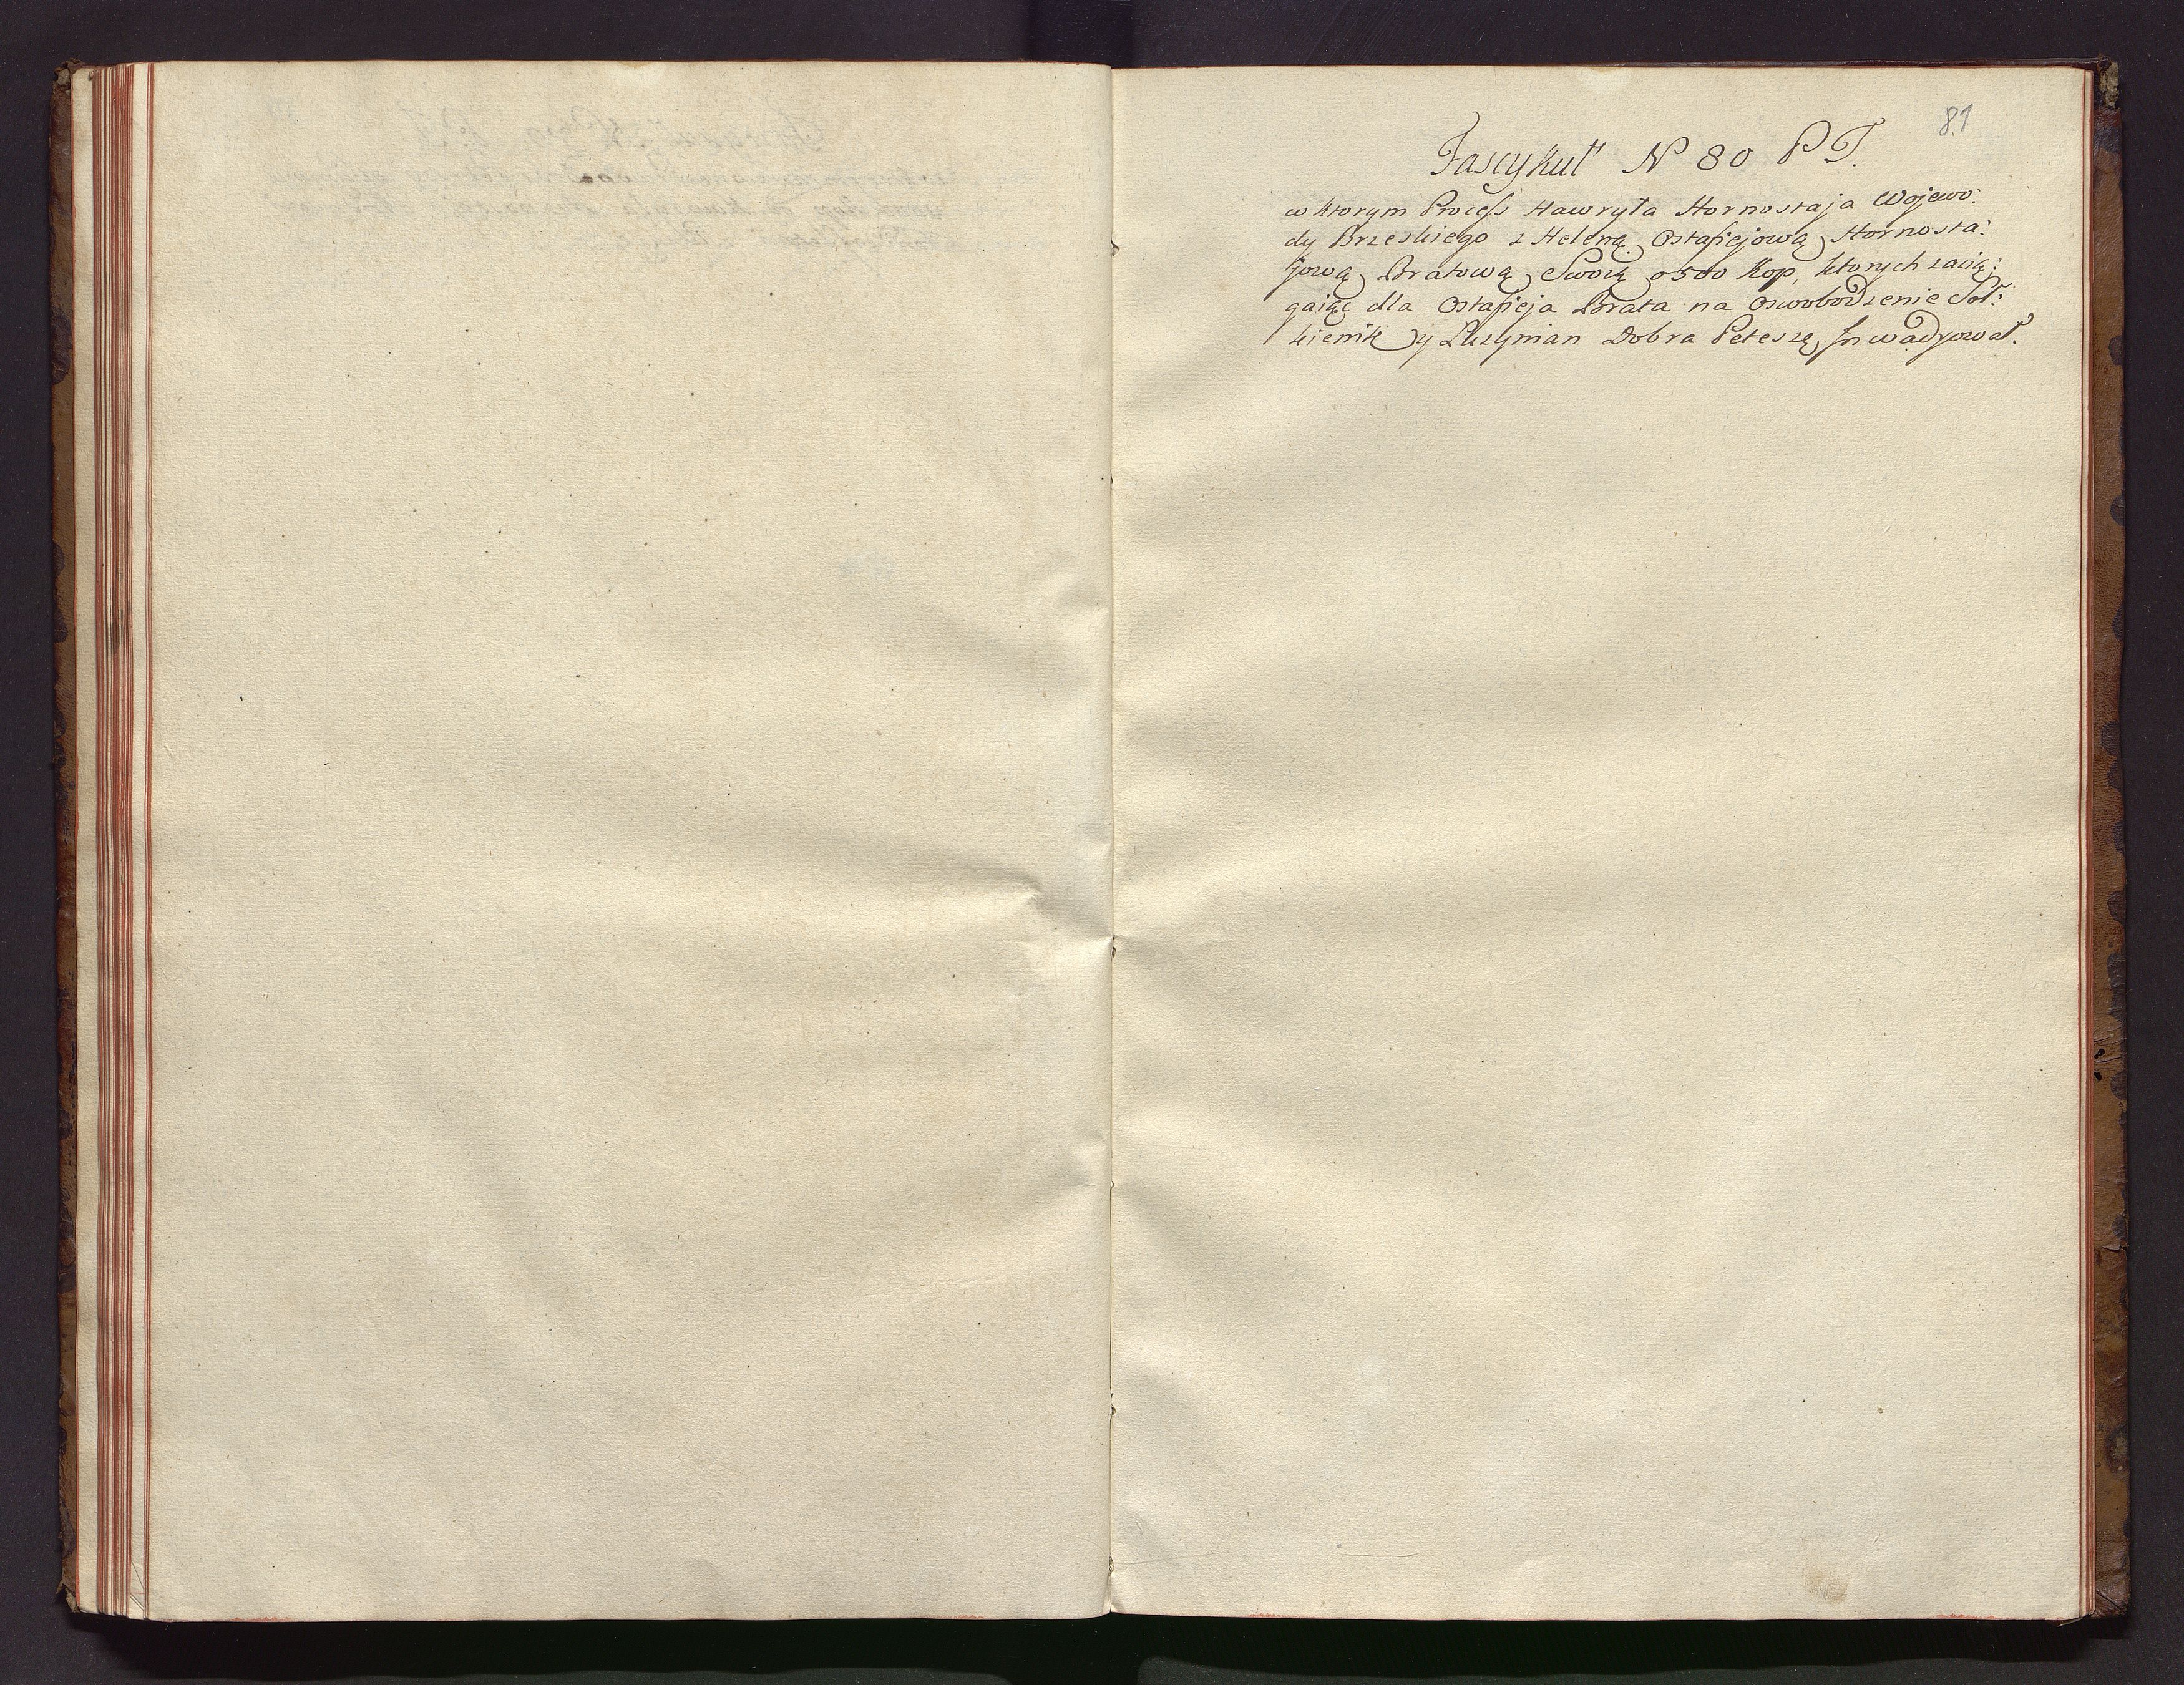 81
Fascykuł N 80 P T.
w ktorym Process Hawryła Hornostaja Wojewo:
dy Brzeskiego z Heleną Ostafiejową Hornosta:
jową Bratową Swoią o 500 Kop, ktorych zacią:
gaiąc dla Ostafieja Brata na Oswobodzenie Soł:
kienik y Luzynian Dobra Peteszę Inwadyował.